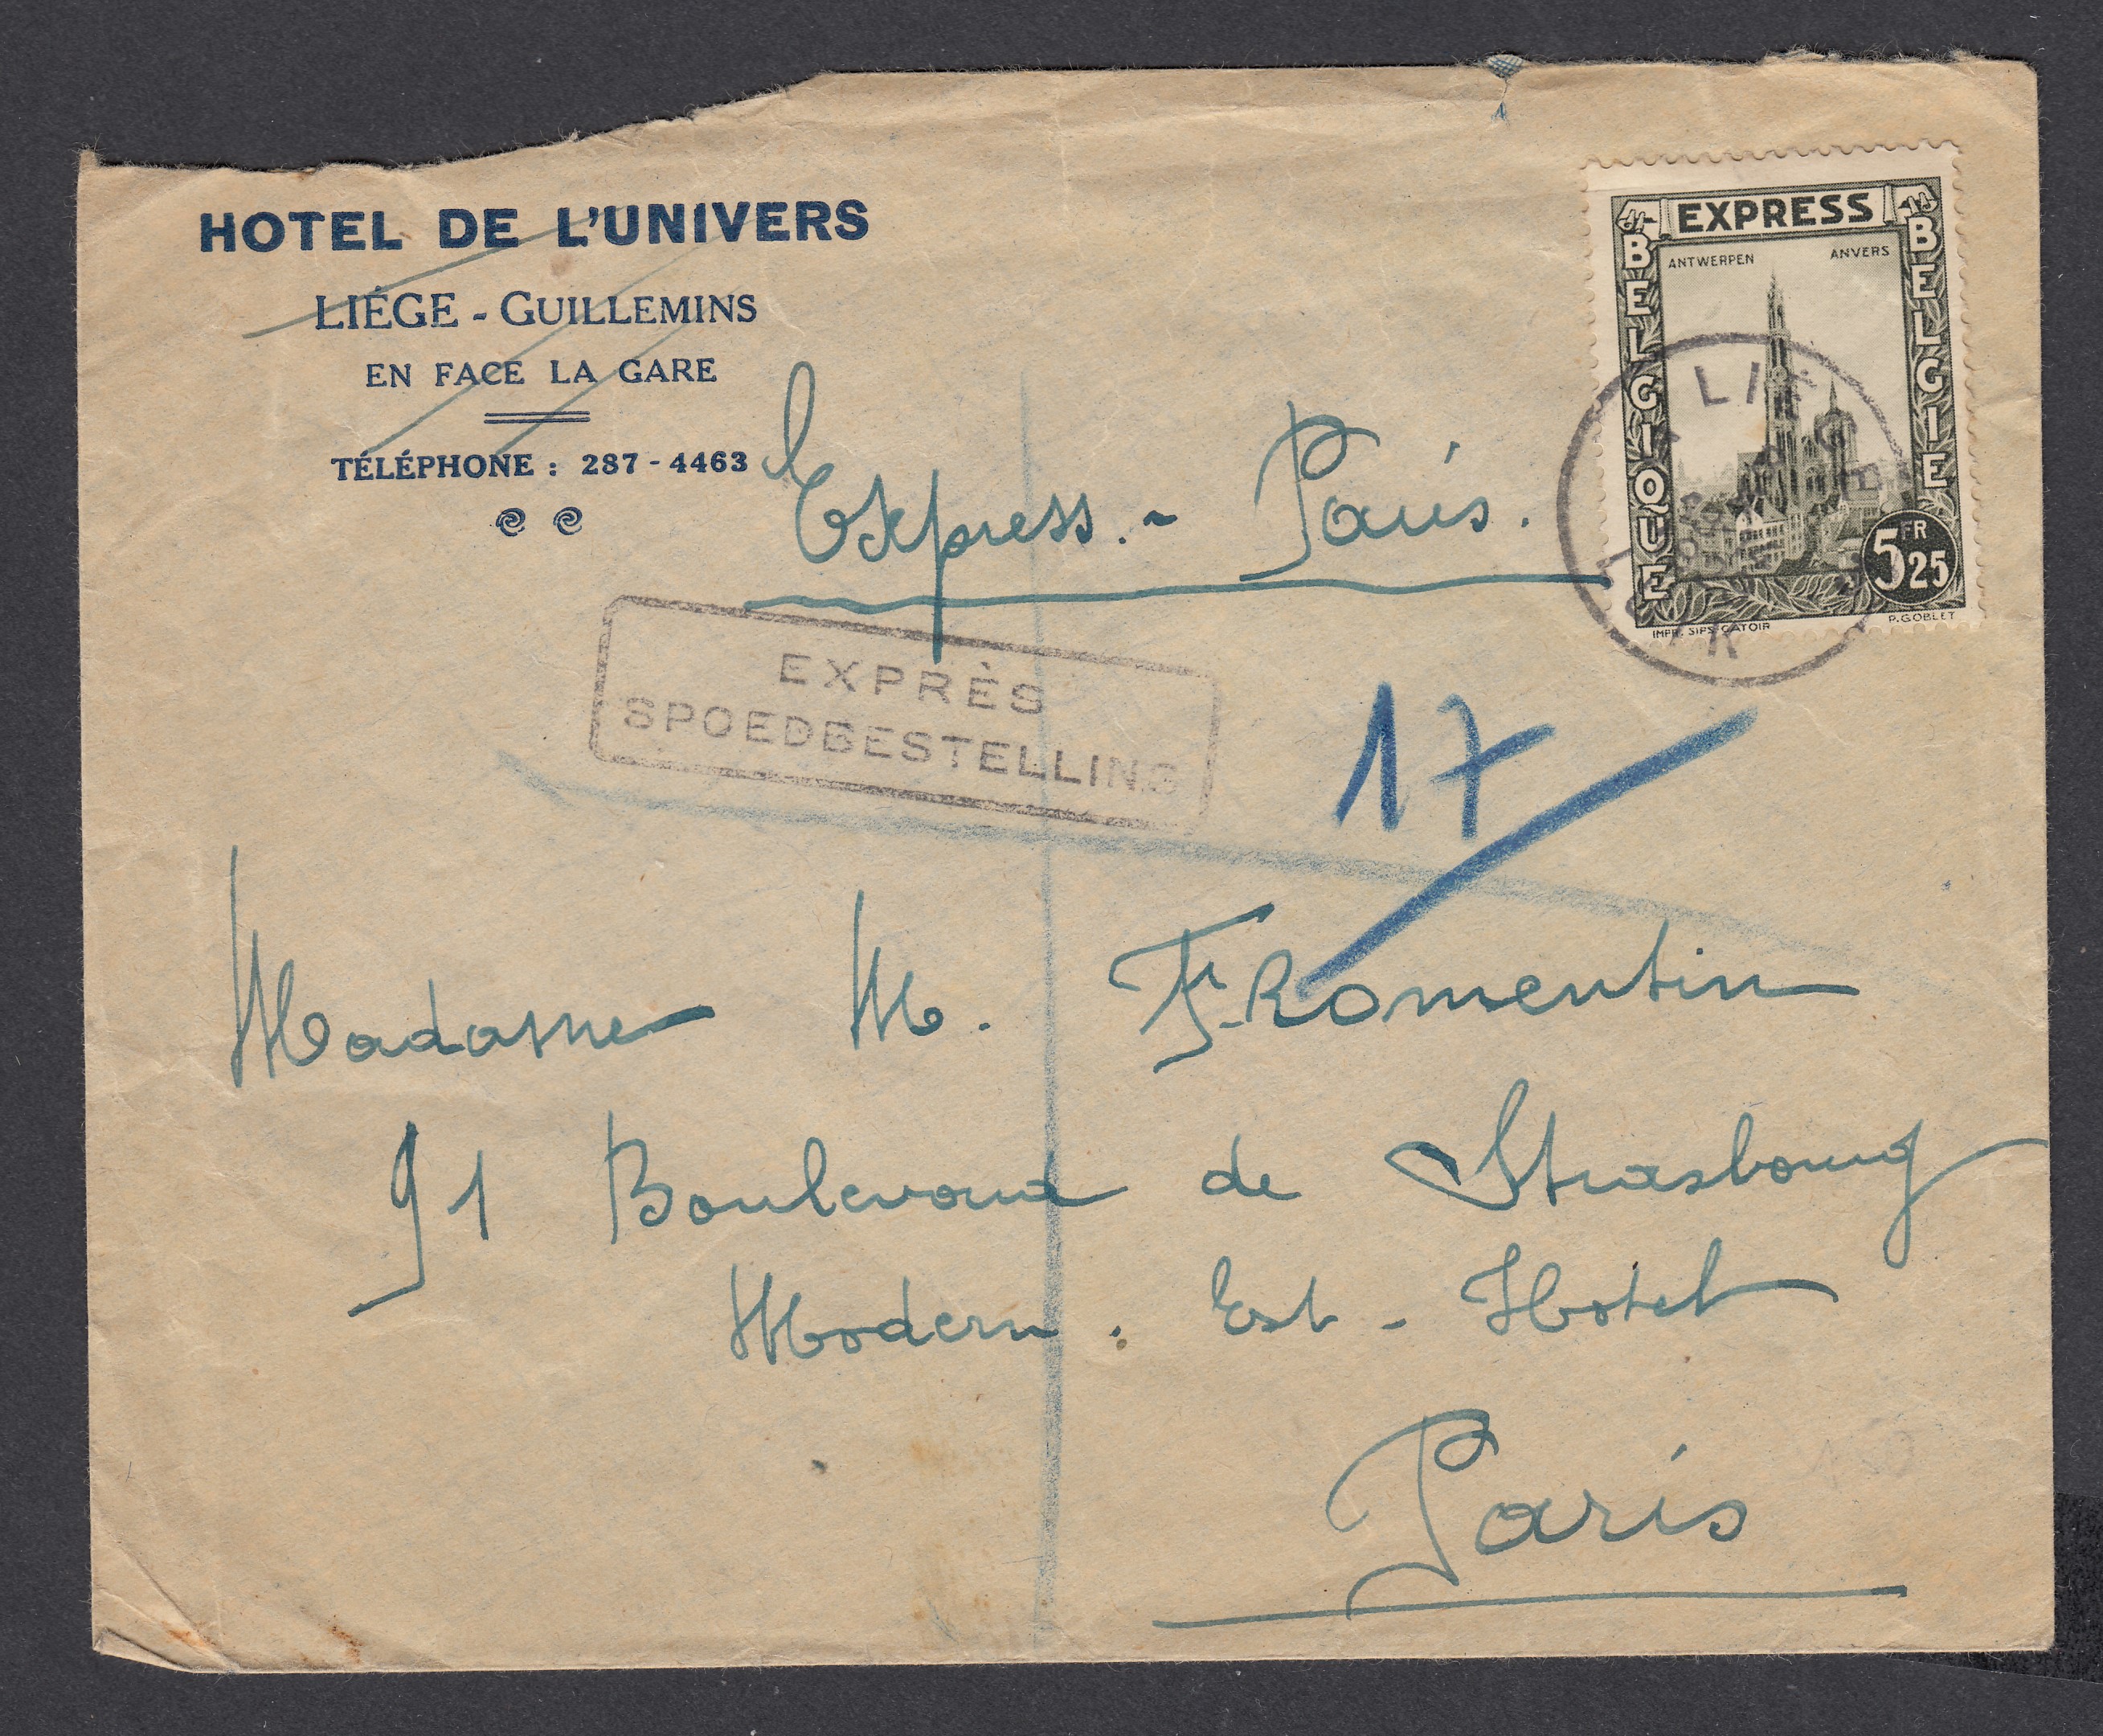 HOTEL DE L'UNIVERS
LIÉGE - GUILLEMINS
EN FACE LA GARE
TÉLÉPHONE : 287-4463
EXPRESS
ANTWERPEN ANVERS
BELGIQUE
BELGIE
5FR25
IMPR. SIPS. CATOIR P.GOBLET
Express. - Paris.
EXPRÈS
SPOEDBESTELLING
17
Madame M. Fromentin
91 Boulevard de Strasbourg
Modern. Est - Hotel
Paris